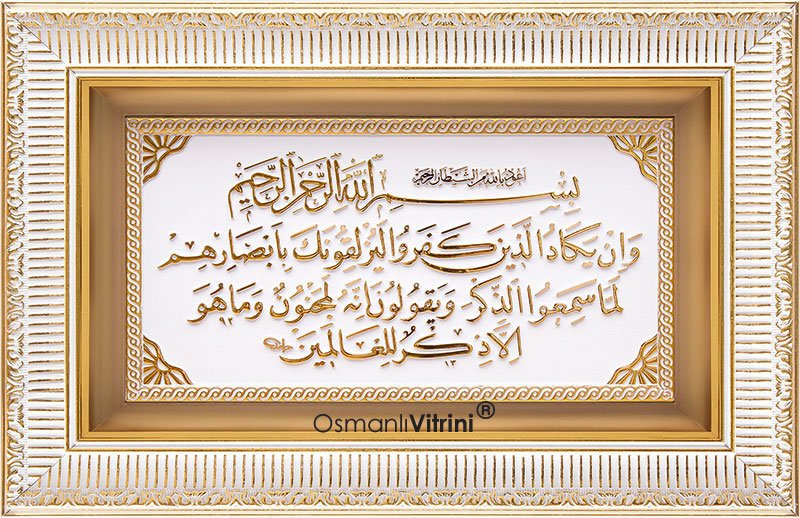 أعوذ بالله من الشيطان الرجيم
بسم الله الرحمن الرحيم
وَاِنْ يَكَادُ الَّذينَ كَفَرُوا لَيُزْلِقُونَكَ بِاَبْصَارِهِمْ
لَمَّا سَمِعُوا الذِّكْرَ وَيَقُولُونَ اِنَّهُ لَمَجْنُونٌ وَمَا هُوَ
اِلَّا ذِكْرٌ لِلْعَالَمينَ
OsmanlıVitrini®